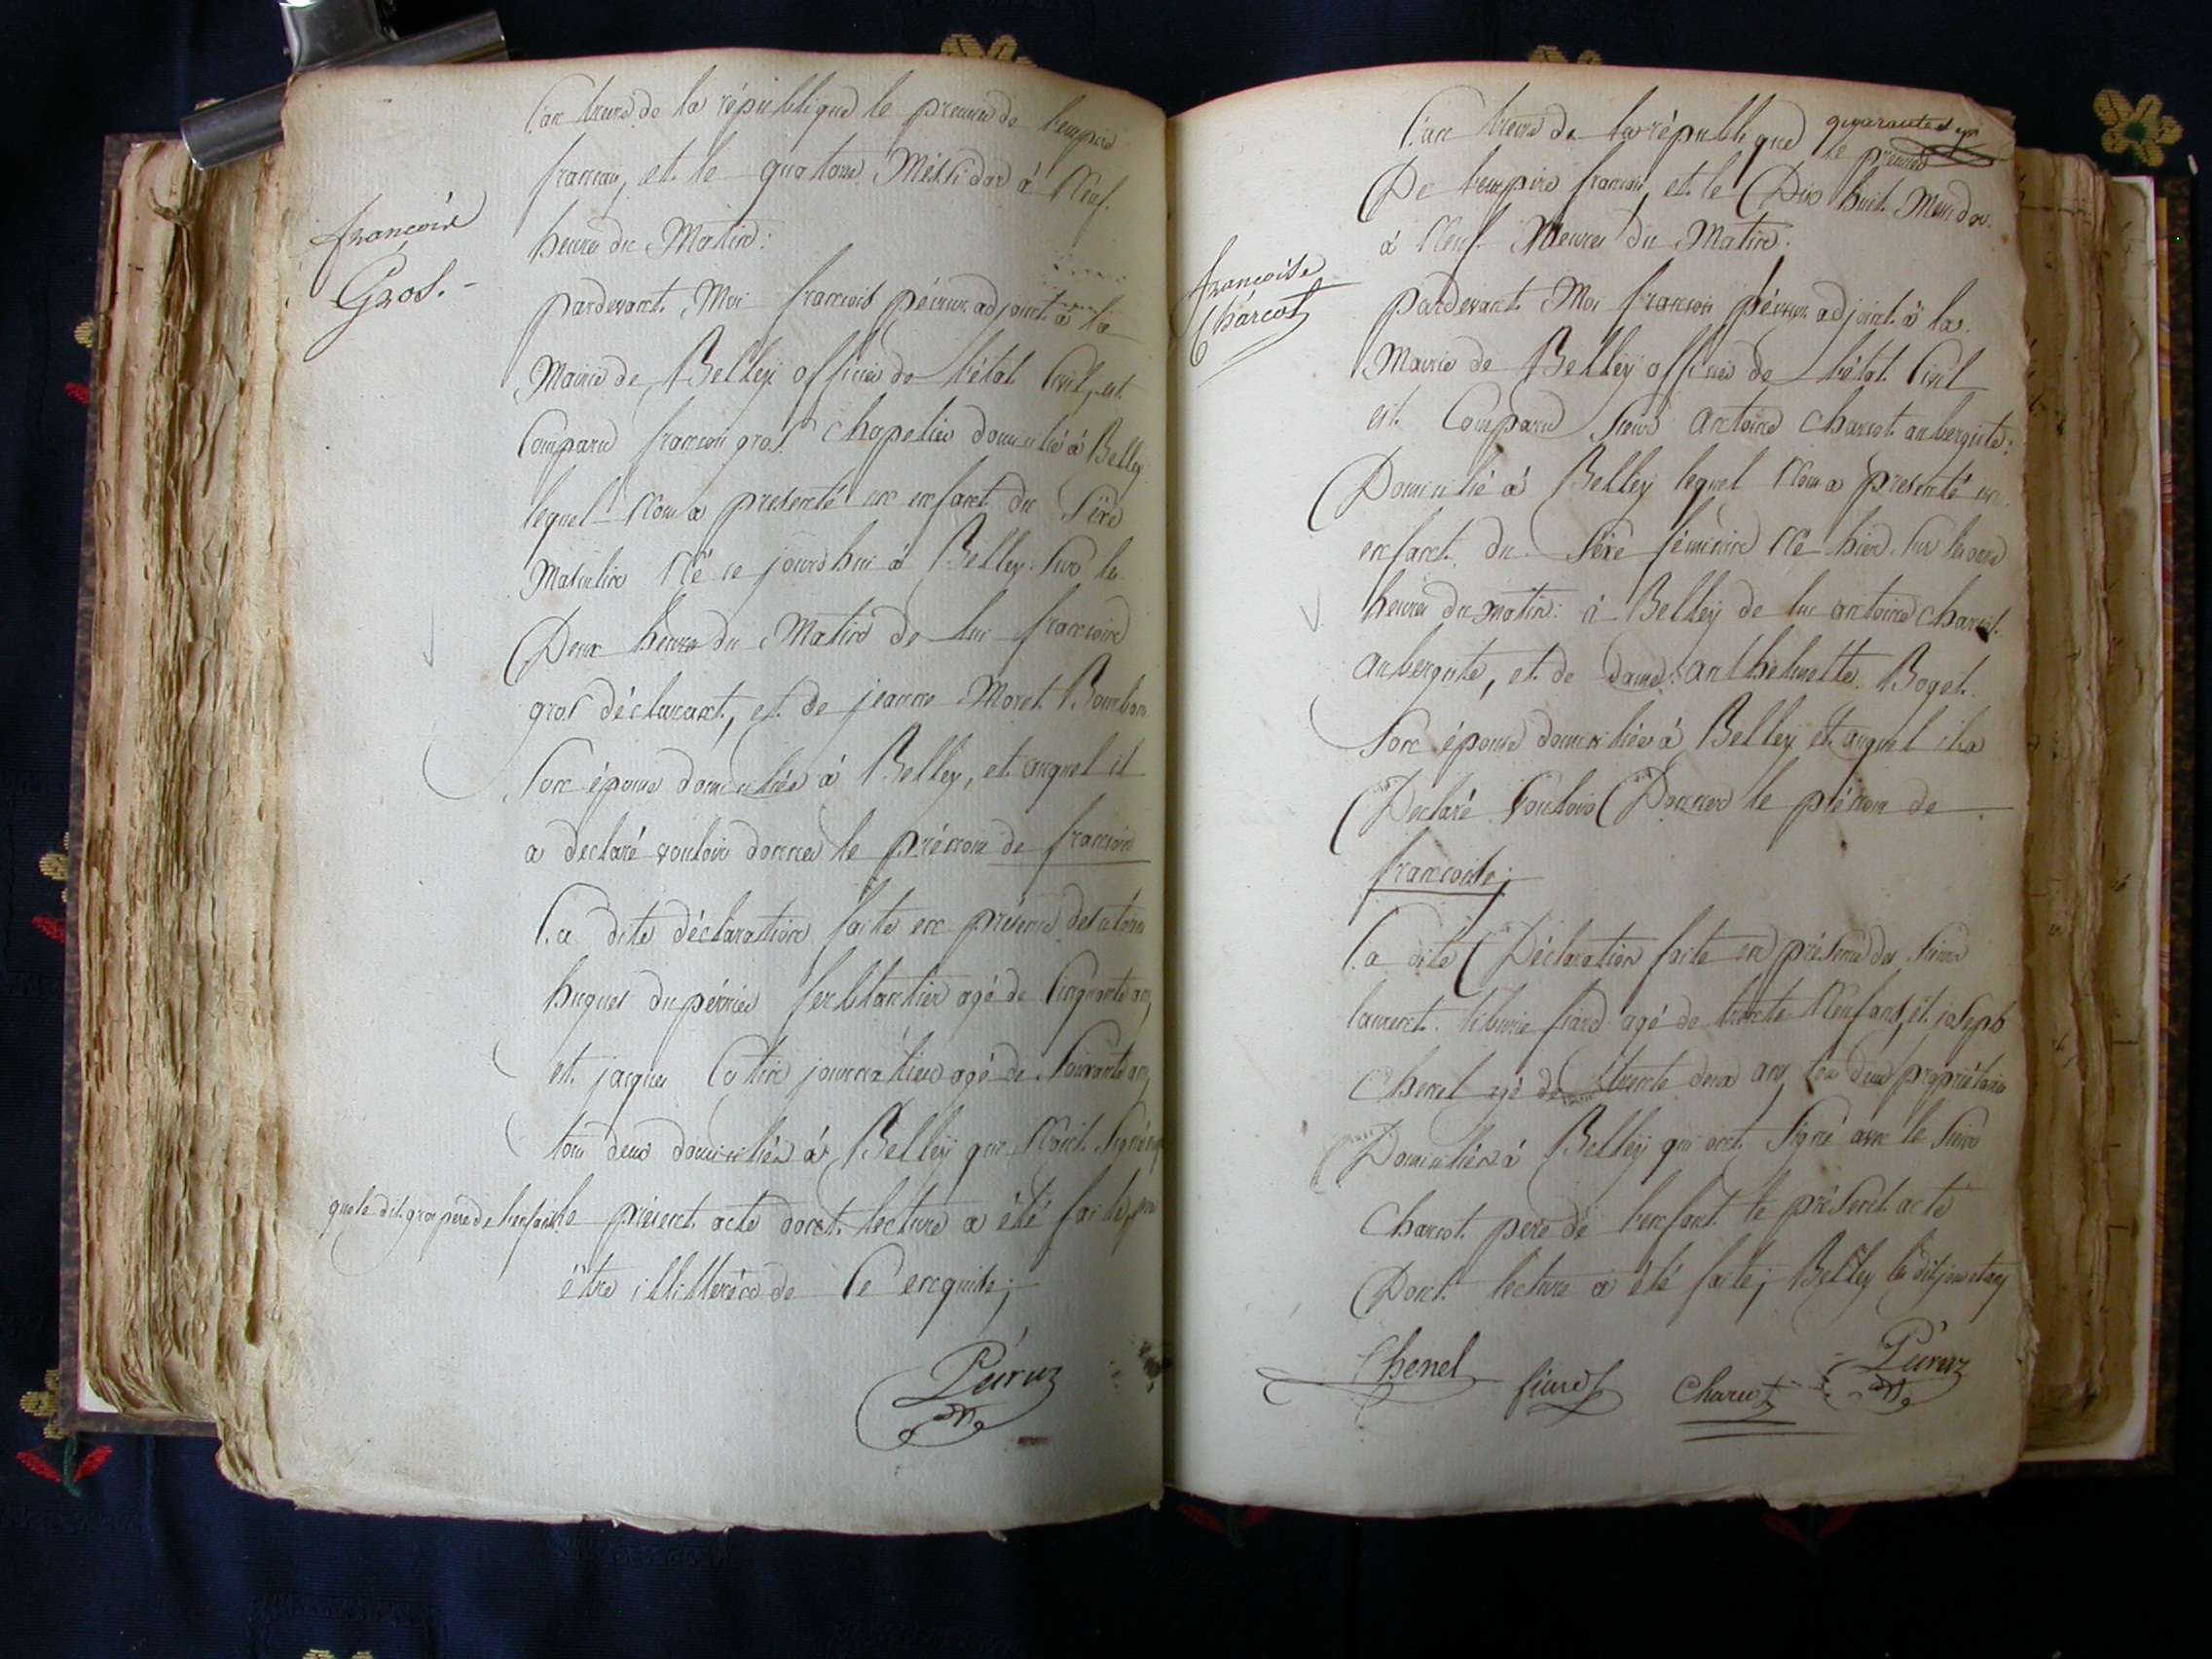 françois
Gros.
L'an treize de la république le premier de l'empire
français, et le quatorze Messidor à Neuf
heures du Matin:
pardevant Moi françois péruz adjoint à la
Mairie de Belley officier de l'état Civil, est
Comparu françois gros chapelier domicilié à Belley
lequel Nous a presenté un enfant du Sexe
Masculin Né ce jourdhui à Belley Sur les
Deux heures du Matin de lui françois
gros déclarant, et de jeanne Moret
Son épouse domiciliée à Belley, et auquel il
a declaré vouloir donner le prénom de françois
La dite déclaration faite en présence des citoyens
hugues dupérrier ferblantier agé de Cinquante ans
et jacques Cotin journalier agé de Soixante ans
tous deux domiciliés à Belley qui N'ont Signé
que le dit gros pere de l'enfant le présent acte dont lecture a été faite, pour
être illitterés de Ce enquis;
Péruz
quarante et un
L'an treize de la république le premier
De l'empire français, et le Dix huit Messidor
à Neuf Heures du Matin.
françoise
Charcot
pardevant Moi françois péruz adjoint à la
Mairie de Belley officier de l'état Civil
est Comparu Sieur antoine charcot aubergiste:
Domicilié à Belley lequel Nous a presenté un
enfant du Sexe féminin Né hier Sur les onze
heures du matin: à Belley de lui antoine charcot
aubergiste, et de dame anthelmette Boget
Son épouse domiciliée à Belley et auquel il a
Declaré Vouloir Donner le prénom de
françoise;
La dite Déclaration faite en présence des Sieurs
laurent tiburce fiard agé de trente Neuf ans, et joseph
Chenel agé de trente deux ans tous deux propriétaires
Domiciliés à Belley qui ont Signé avec le Sieur
Charcot pere de l'enfant le présent acte
Dont lecture a été faite; Belley les dits jour et an
Chenel fiard Charcot Péruz